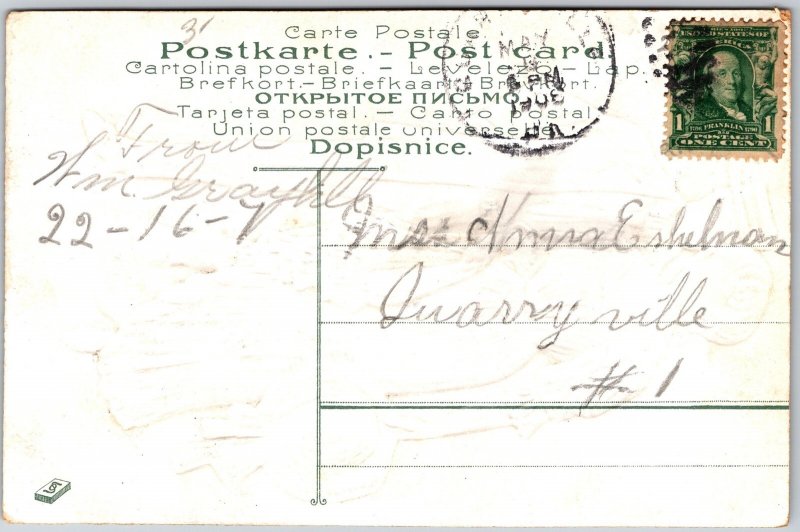 3
Carte Postale.
Postkarte. - Post card
Cartolina postale. - Levelező-Lap.
Brefkort.-Briefkaart Brevkort.
ОТКРЫТОЕ ПИСЬМО.
Tarjeta postal. - Carto postal
Union postale universelle.
Dopisnice.
MAY
1908
UNITED STATES OF AMERICA
1 FRANKLIN 1
1706 1790
POSTAGE
ONE CENT
From
Wm. Graybill
22-16-1
Miss Anna Eshelman
Quarryville
# 1